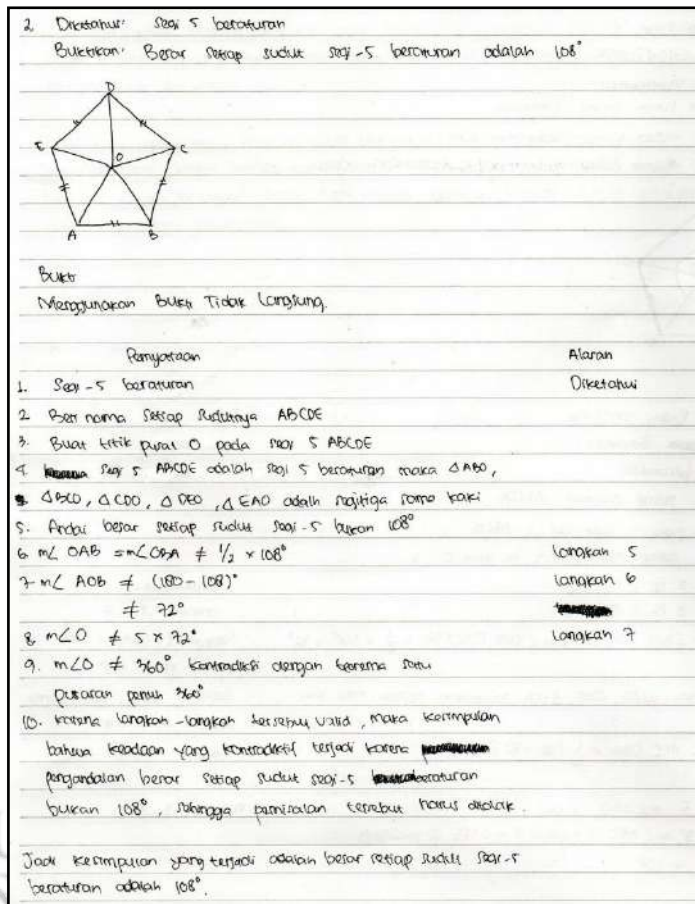 2. Diketahui: segi 5 beraturan
Buktikan: Besar setiap sudut segi-5 beraturan adalah 108°
D
E
C
O
A
B
Bukti
Menggunakan Bukti Tidak Langsung.
Pernyataan Alasan
1. Segi-5 beraturan Diketahui
2 Beri nama setiap sudutnya ABCDE
3. Buat titik pusat O pada segi 5 ABCDE
4. segi 5 ABCDE adalah segi 5 beraturan maka △ABO,
△BCO, △CDO, △DEO, △EAO adalh segitiga sama kaki
5. Andai besar setiap sudut segi-5 bukan 108°
6. m∠ OAB = m∠OBA ≠ 1/2 × 108° langkah 5
7. m∠ AOB ≠ (180 - 108)° langkah 6
≠ 72°
8. m∠O ≠ 5 × 72° langkah 7
9. m∠O ≠ 360° kontradiksi dengan teorema satu
putaran penuh 360°
10. karena langkah-langkah tersebut valid, maka kesimpulan
bahwa keadaan yang kontradiktif terjadi karena
pengandaian besar setiap sudut segi-5 beraturan
bukan 108°, sehingga pemisalan tersebut harus ditolak.
Jadi kesimpulan yang terjadi adalah besar setiap sudut segi-5
beraturan adalah 108°.